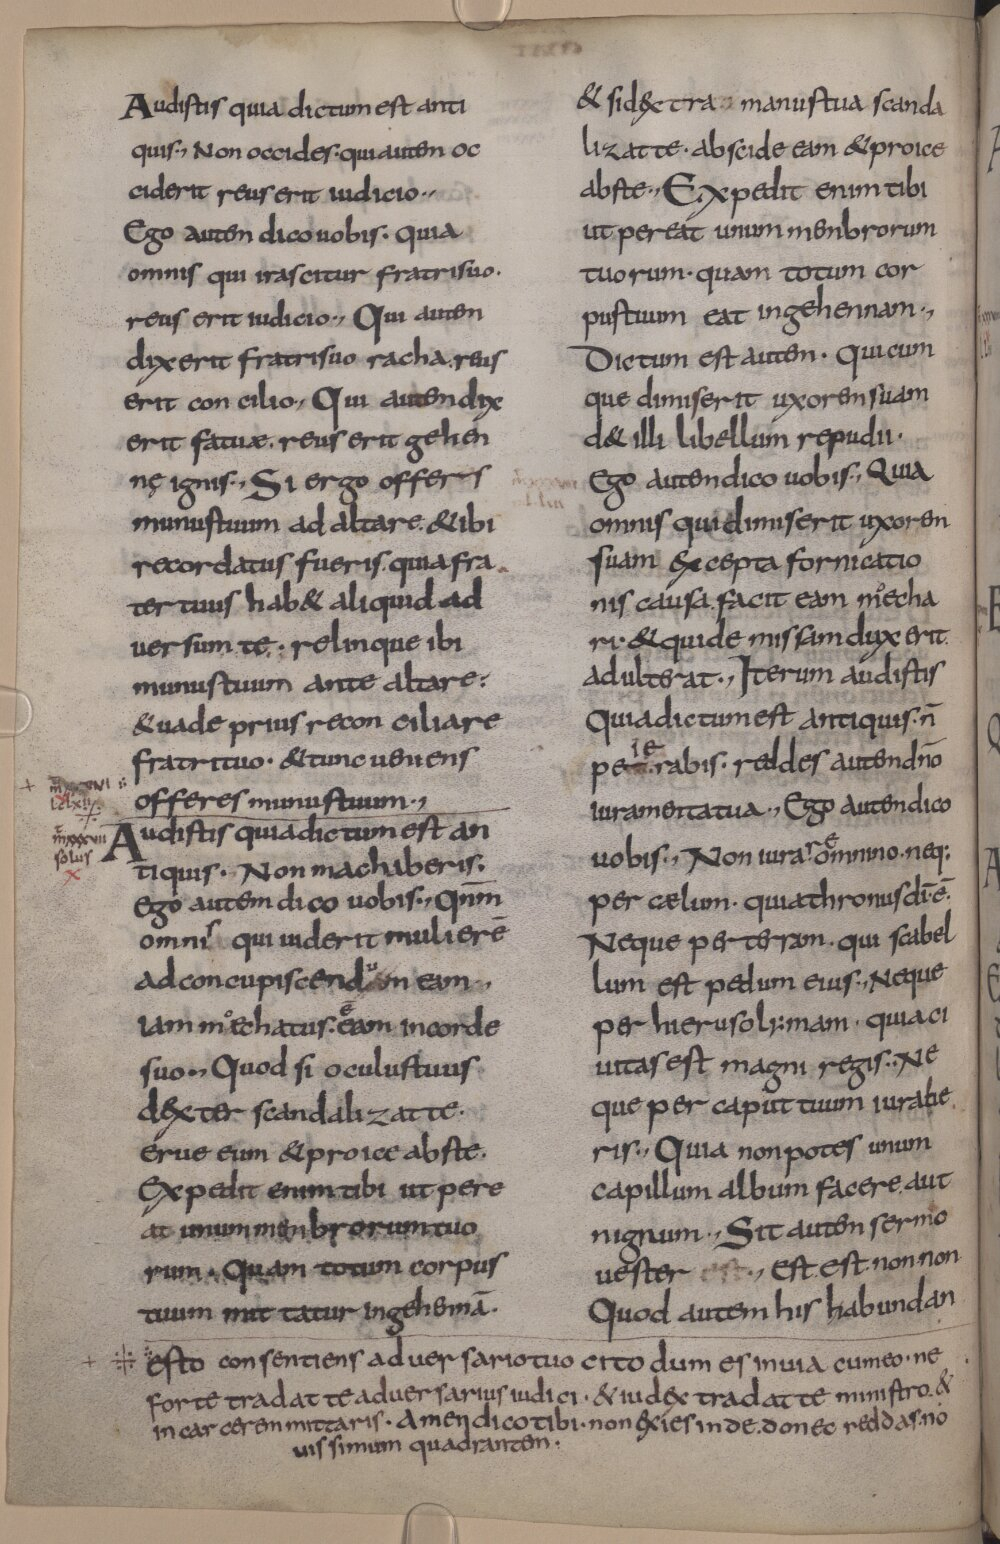 Audistis quia dictum est anti
quis., Non occides. qui auten oc
ciderit reus erit iudicio.,
Ego auten dico uobis. Quia
omnis qui irascitur fratri suo.
reus erit iudicio., Qui auten
dixerit fratri suo racha. reus
erit con cilio., Qui auten dix
erit fatuæ. reus erit gehen
nę ignis., Si ergo offers
munus tuum ad altare. & ibi
recordatus fueris. quia fra
ter tuus hab& aliquid ad
uersum te. relinque ibi
munus tuum ante altare:
& uade prius recon ciliare
fratri tuo. & tunc ueniens
offeres munus tuum.,
Audistis quia dictum est an
tiquis. Non machaberis:
Ego autem dico uobis., Qnm̄
omniſ qui uiderit mulierē
ad concupiscendum eam.,
iam moechatus. ē eam in corde
suo., Quod si oculus tuus
d&xter scandalizat te.
erue eum & proice abste.
Expedit enim tibi ut pere
at unum menbrorum tuo
rum. Quam totum corpus
tuum mittatur in gehennā.
& si d&xtra manus tua scanda
lizat te. abscide eam & proice
abste., Expedit enim tibi
ut pereat unum menbrorum
tuorum. quam totum cor
pus tuum eat in gehennam.,
Dictum est auten. Quicum
que dimiserit uxoren suam
d& illi libellum repudii.
Ego auten dico uobis., Quia
omnis qui dimiserit uxoren
suam &xcepta fornicatio
nis causa. facit eam moecha
ri. & qui demissam duxerit.
adulterat., Iterum audistis
Quia dictum est antiquis. n̄
peierabis. reddes auten dn̄o
iuramenta tua., Ego auten dico
uobis., Non iurare omnino. neq:
per cælum. quia thronus dī ē.
Neque per terram. qui scabel
lum est pedum eius., Neque
per hierusolymam. quia ci
uitas est magni regis., Ne
que per caput tuum iurabe
ris., Quia non potes unum
capillum album facere. aut
nigrum., Sit auten sermo
uester est., Est. est. non non
Quod autem his habundan
esto consentiens aduersario tuo cito dum es in uia cum eo. ne
forte tradat te aduersarius iudici. & iud&x tradat te ministro. &
in carceren mittaris. Amen dico tibi. non &xies inde. donec reddas. no
uissimum quadranten.
solus